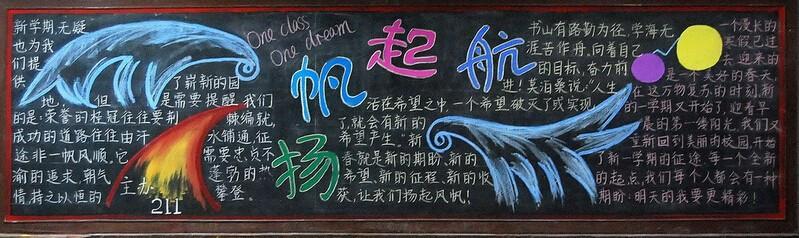 新学期,无疑
也为我
们提
供了崭新的园
地,但是需要提醒我们
的是:荣誉的桂冠往往要荆棘编就,
成功的道路往往由汗水铺通,征
途非一帆风顺,它需要忠贞不
渝的追求,朝气蓬勃的
情,持之以恒的攀登。
主办:
211
One class
One dream
扬帆起航
书山有路勤为径,学海无
涯苦作舟。向着自己
的目标,奋力前
进!吴泊豪说:"人生
活在希望之中,一个希望破灭了或实现
了,就会有新的
希望产生。"新
春就是新的期盼、新的
希望、新的征程、新的收
获,让我们扬起风帆!
一个漫长的
寒假已过
去,迎来的
是一个美好的春天,
在这万物复苏的时刻,新
的一学期又开始了,迎着早
晨的第一缕阳光,我们又
重新回到美丽的校园,开始
了新一学期的征途,每一个全新
的起点,我们每个人都会有一种
期盼:明天的我要更精彩!